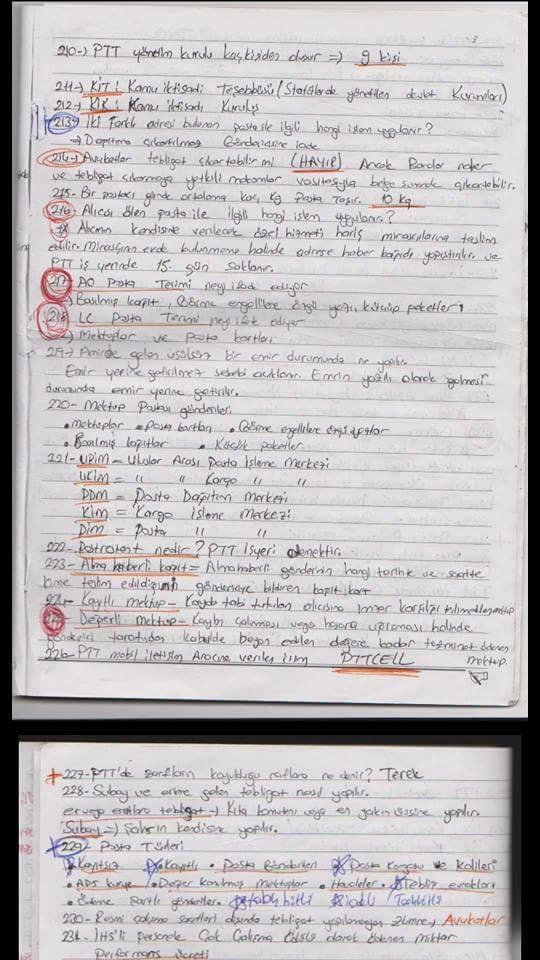 210-) PTT yönetim kurulu kaç kişiden olusur => 9 kişi
211-) KİT: Kamu iktisadi Teşebbüsü (Statülerde yönetilen devlet kurumları)
212-) KİK: Kamu iktisadi Kuruluş
213-) İki Farklı adresi bulunan posta ile ilgili hangi işlem uygulanır?
→ Dagıtıma çıkartılmaz Göndericisine iade
214-) Avukatlar tebligat çıkartabilir mi (HAYIR) Ancak Barolar noter
ve tebligat çıkarmaya yetkili makamlar vasıtasıyla belge sunarak çıkartabilir.
215- Bir postacı günde ortalama kaç kg posta Taşır. 10 kg
216- Alıcısı ölen posta ile ilgili hangi işlem uygulanır?
Alıcının kendisine verilecek özel hizmeti hariç mirascılarına teslim
edilir. Mirasçının evde bulunmama halinde adrese haber kağıdı yapıştırılır. ve
PTT iş yerinde 15. gün saklanır.
217- AO Posta Terimi neyi ifade ediyor
Basılmış kagıt, Görme engellilere özgü yazı, küçük paketler
218- LC Posta Terimi neyi ifade ediyor
Mektuplar ve posta kartları
219-) Amirde gelen usülsüz bir emir durumunda ne yapılır.
Emir yerine getirilmez sebebi açıklanır. Emrin yazılı olarak gelmesi
durumunda emir yerine getirilir.
220- Mektup Postası gönderileri.
• Mektuplar • Posta kartları • Görme engellilere özgü yazılar
• Basılmış kağıtlar • Küçük paketler
221- UPİM = Uluslar Arası Posta İşleme Merkezi
UKİM = " " Kargo " "
PDM = Posta Dağıtım Merkezi
KİM = Kargo işleme Merkezi
PİM = Posta " "
222- Postrestant nedir? PTT İşyeri demektir.
223- Alma haberli kagıt = Alma haberli gönderinin hangi tarihte ve saatte
kime teslim edildiğini gönderene bildiren kagıt kart
224- Kayıtlı mektup - Kayda tabi tutulan alıcısına imza karşılığı mektup
225- Değerli mektup - Kaybı çalınması veya hasara uğraması halinde
gönderici tarafından kabulde beyan edilen değere kadar tazminat ödenen
mektup.
226- PTT mobil iletişim Aracına verilen isim PTTCELL
227- PTT'de zarfların koyulduğu raflara ne denir? Terek
228- Subay ve erlere gelen tebligat nasıl yapılır.
er veya erbaşlara tebligat -) Kıta komutanı veya en yakın üssüne yapılır.
Subay =) Şahsın kendisine yapılır.
229- Posta Türleri
Kayıtsız • Kayıtlı • Posta Gönderileri • Posta Kargosu ve Kolileri
• APS kurye • Değer konulmuş mektuplar • Havaleler • Tebliğ evrakları
• Ödeme şartlı gönderiler. iadeli Taahhütlü
230- Resmi çalışma saatleri dışında tebligat yapılamayan zümre) Avukatlar
231- İHS'li personele Çok Çalışma ödülü olarak ödenen miktar
Performans ücreti